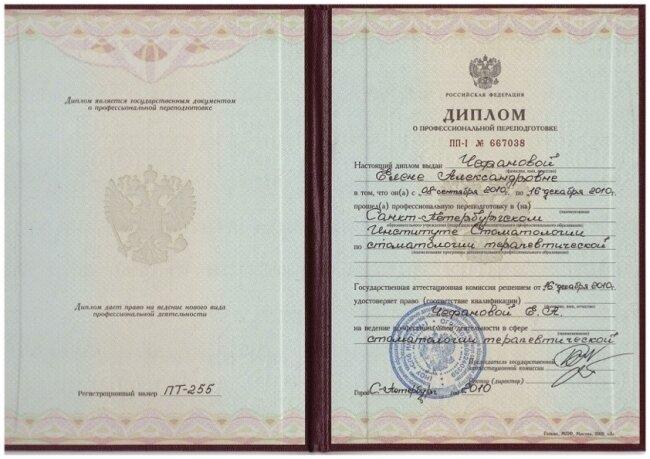 Диплом является государственным документом
о профессиональной переподготовке
Диплом дает право на ведение нового вида
профессиональной деятельности
Регистрационный номер ПТ-255
РОССИЙСКАЯ ФЕДЕРАЦИЯ
ДИПЛОМ
О ПРОФЕССИОНАЛЬНОЙ ПЕРЕПОДГОТОВКЕ
ПП-I № 667038
Настоящий диплом выдан Чефановой
(фамилия, имя, отчество)
Елене Александровне
в том, что он(а) с 08 сентября 2010г. по 16 декабря 2010г.
прошел(а) профессиональную переподготовку в (на)
Санкт-Петербургском
(наименование
образовательного учреждения (подразделения) дополнительного профессионального образования)
Институте Стоматологии
по стоматологии терапевтической
(наименование программы дополнительного профессионального образования)
Государственная аттестационная комиссия решением от 16 декабря 2010г.
удостоверяет право (соответствие квалификации)
(фамилия, имя, отчество)
Чефановой Е.А.
на ведение профессиональной деятельности в сфере
(наименование)
стоматологии терапевтической
Председатель государственной
аттестационной комиссии
Ректор (директор)
Город С-Петербург 2010